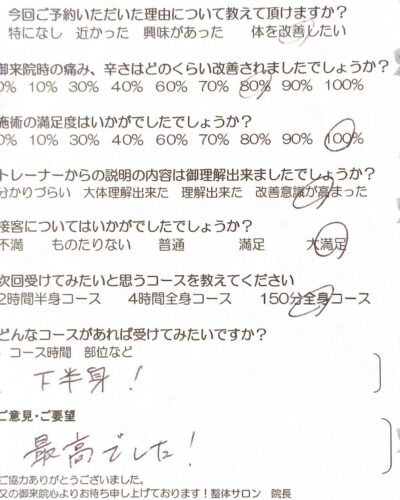 今回ご予約いただいた理由について教えて頂けますか?
特になし 近かった 興味があった 体を改善したい
御来院時の痛み、辛さはどのくらい改善されましたでしょうか?
0% 10% 30% 40% 60% 70% 80% 90% 100%
施術の満足度はいかがでしたでしょうか?
0% 10% 30% 40% 60% 70% 80% 90% 100%
トレーナーからの説明の内容は御理解出来ましたでしょうか?
分かりづらい 大体理解出来た 理解出来た 改善意識が高まった
接客についてはいかがでしたでしょうか?
不満 ものたりない 普通 満足 大満足
次回受けてみたいと思うコースを教えてください
2時間半身コース 4時間全身コース 150分全身コース
どんなコースがあれば受けてみたいですか?
コース時間 部位など
下半身!
ご意見・ご要望
最高でした!
ご協力ありがとうございました。
又の御来院心よりお待ち申し上げております!整体サロン 院長